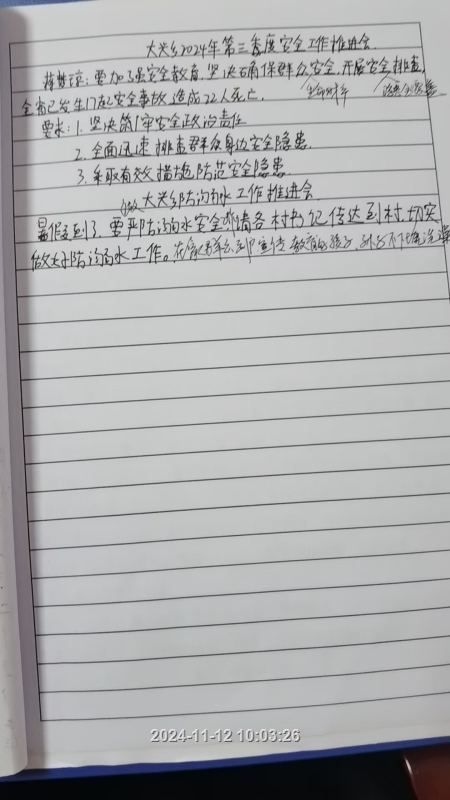 大关乡2024年第三季度安全工作推进会
蒋梦琼：要加强安全教育，坚决确保群众安全，开展安全排查，
生命财产
全省已发生17起安全事故，造成22人死亡.
要求：1. 坚决落牢安全政治责任
2. 全面迅速排查群众身边安全隐患.
3. 采取有效措施防范安全隐患
大关乡防溺水工作推进会
暑假到了，要严防溺水安全，请各村书记传达到村，切实
做好防溺水工作。在家长群里宣传教育好孩子，
2024-11-12 10:03:26